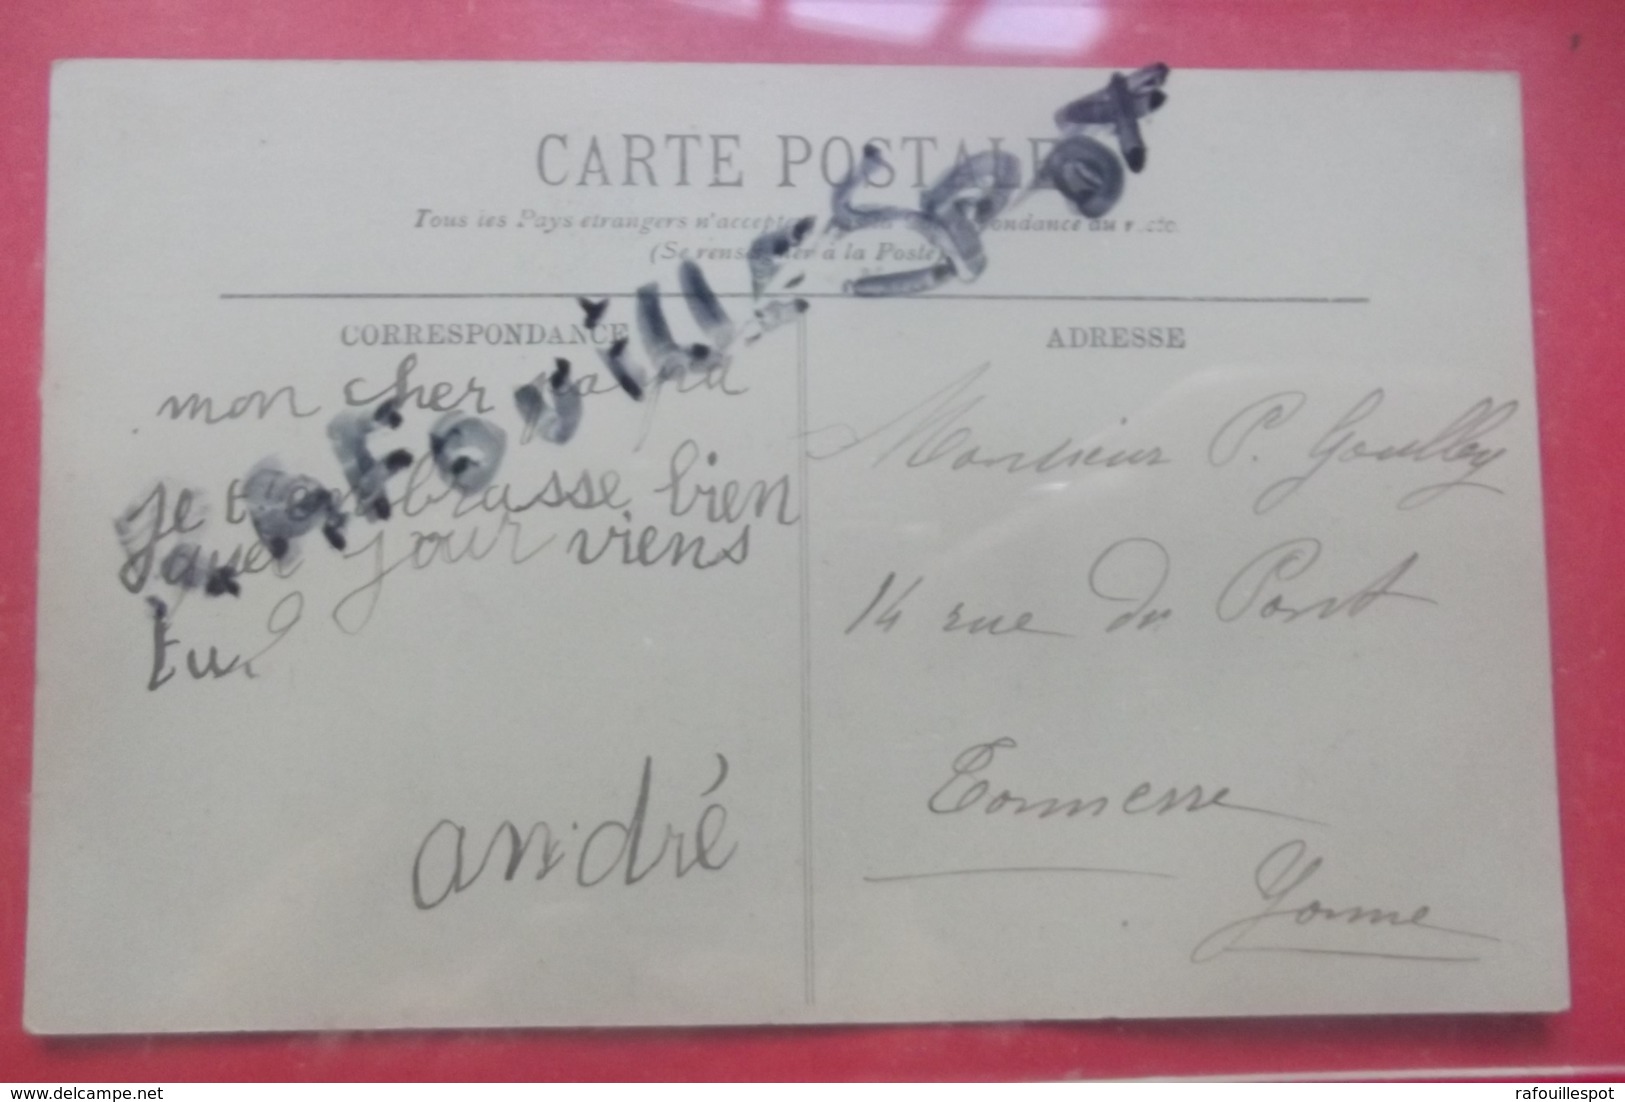 CARTE POSTALE
Tous les Pays étrangers n'acceptent ondance au recto
(Se renseigner à la Poste)
RAFOUILLESPOT
CORRESPONDANCE
mon cher papa
je t'embrasse bien
quel jour viens
tu?
andré
ADRESSE
Monsieur P. Goulley
14 rue du Pont
Tonnerre
Yonne
www.delcampe.net
rafouillespot